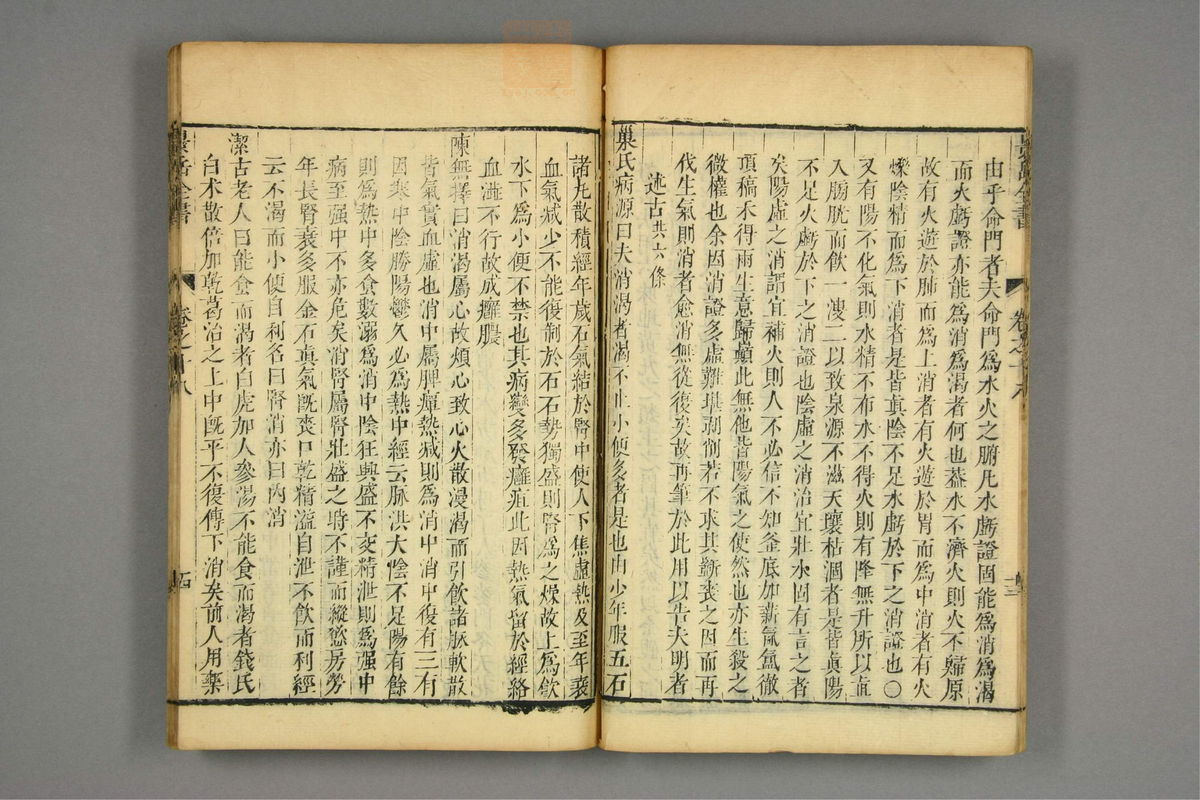 由乎命門者夫命門爲水火之腑凡水虧證固能爲消爲渴
而火虧證亦能爲消爲渴者何也葢水不濟火則火不歸原
故有火遊於肺而爲上消者有火遊於胃而爲中消者有火
爍陰精而爲下消者是皆眞陰不足水虧於下之消證也○
又有陽不化氣則水精不布水不得火則有降無升所以直
入膀胱而飲一溲二以致泉源不滋天壤枯涸者是皆眞陽
不足火虧於下之消證也陰虛之消治宜壯水固有言之者
矣陽虛之消謂宜補火則人必不信不知釜底加薪氤氳徹
頂槁禾得雨生意歸巔此無他皆陽氣之使然也亦生殺之
微權也余因消證多虛難堪剥削若不求其斵喪之因而再
伐生氣則消者愈消無從復矣故再筆於此用以告夫明者
述古共六條
巢氏病源曰夫消渴者渴不止小便多者是也由少年服五石
諸丸散積經年歲石氣結於腎中使人下焦虛熱及至年衰
血氣减少不能復制於石石勢獨盛則腎爲之燥故上爲飲
水下爲小便不禁也其病變多發癰疽此因熱氣留於經絡
血澁不行故成癰膿
陳無擇曰消渴屬心故煩心致心火散漫渴而引飲諸脈軟散
皆氣實血虛也消中屬脾癉熱减則爲消中消中復有三有
因寒中陰勝陽鬱久必爲熱中經云脉洪大陰不足陽有餘
則爲熱中多食數溺爲消中陰狂興盛不交精泄則爲强中
病至强中不亦危矣消腎屬腎壯盛之時不謹而縱慾房勞
年長腎衰多服金石眞氣旣喪口乾精溢自泄不飲而利經
云不渴而小便自利名曰腎消亦曰內消
潔古老人曰能食而渴者白虎加人參湯不能食而渴者錢氏
白术散倍加乾葛治之上中旣平不復傳下消矣前人用藥
景岳全書
卷之十八
十四